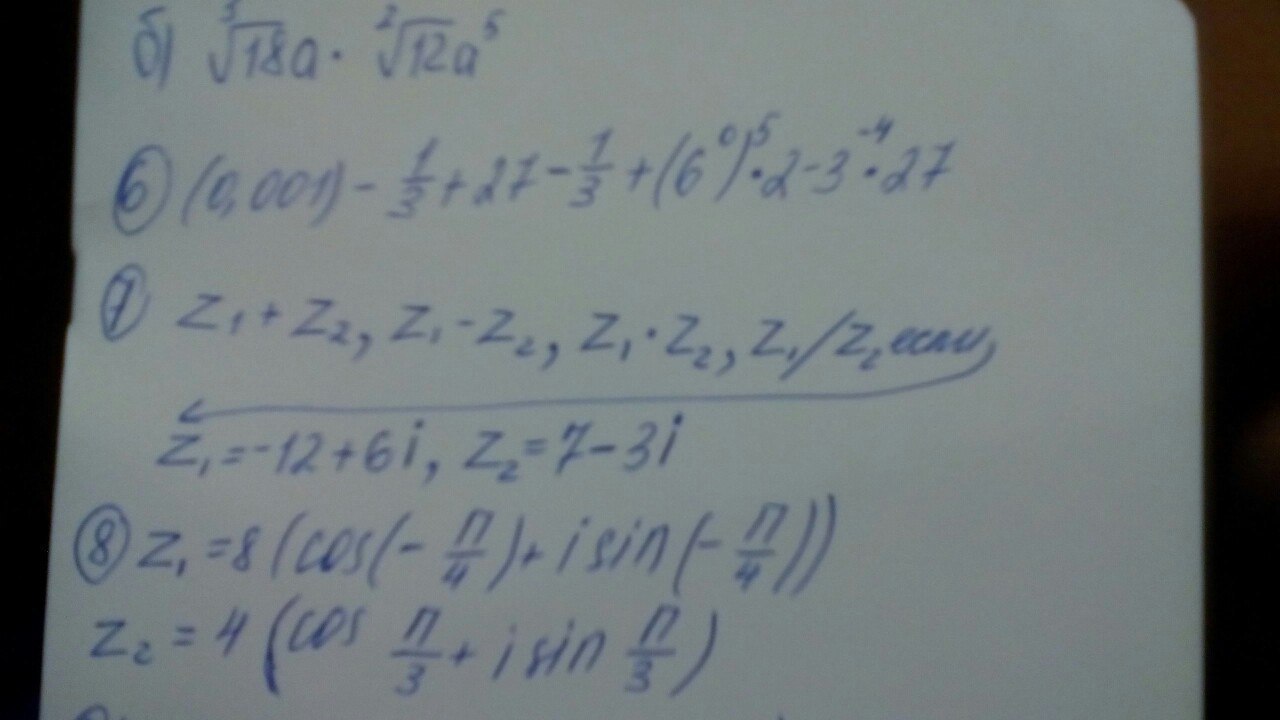 б) ³√18a · ²√12a⁵
⑥ (0,001) - 1/3 + 27 - 1/3 + (6⁰)⁵ · 2 - 3⁻⁴ · 27
⑦ z₁ + z₂, z₁ - z₂, z₁ · z₂, z₁/z₂ если,
z₁ = -12 + 6i, z₂ = 7 - 3i
⑧ z₁ = 8 (cos(- π/4) + i sin(- π/4))
z₂ = 4 (cos π/3 + i sin π/3)